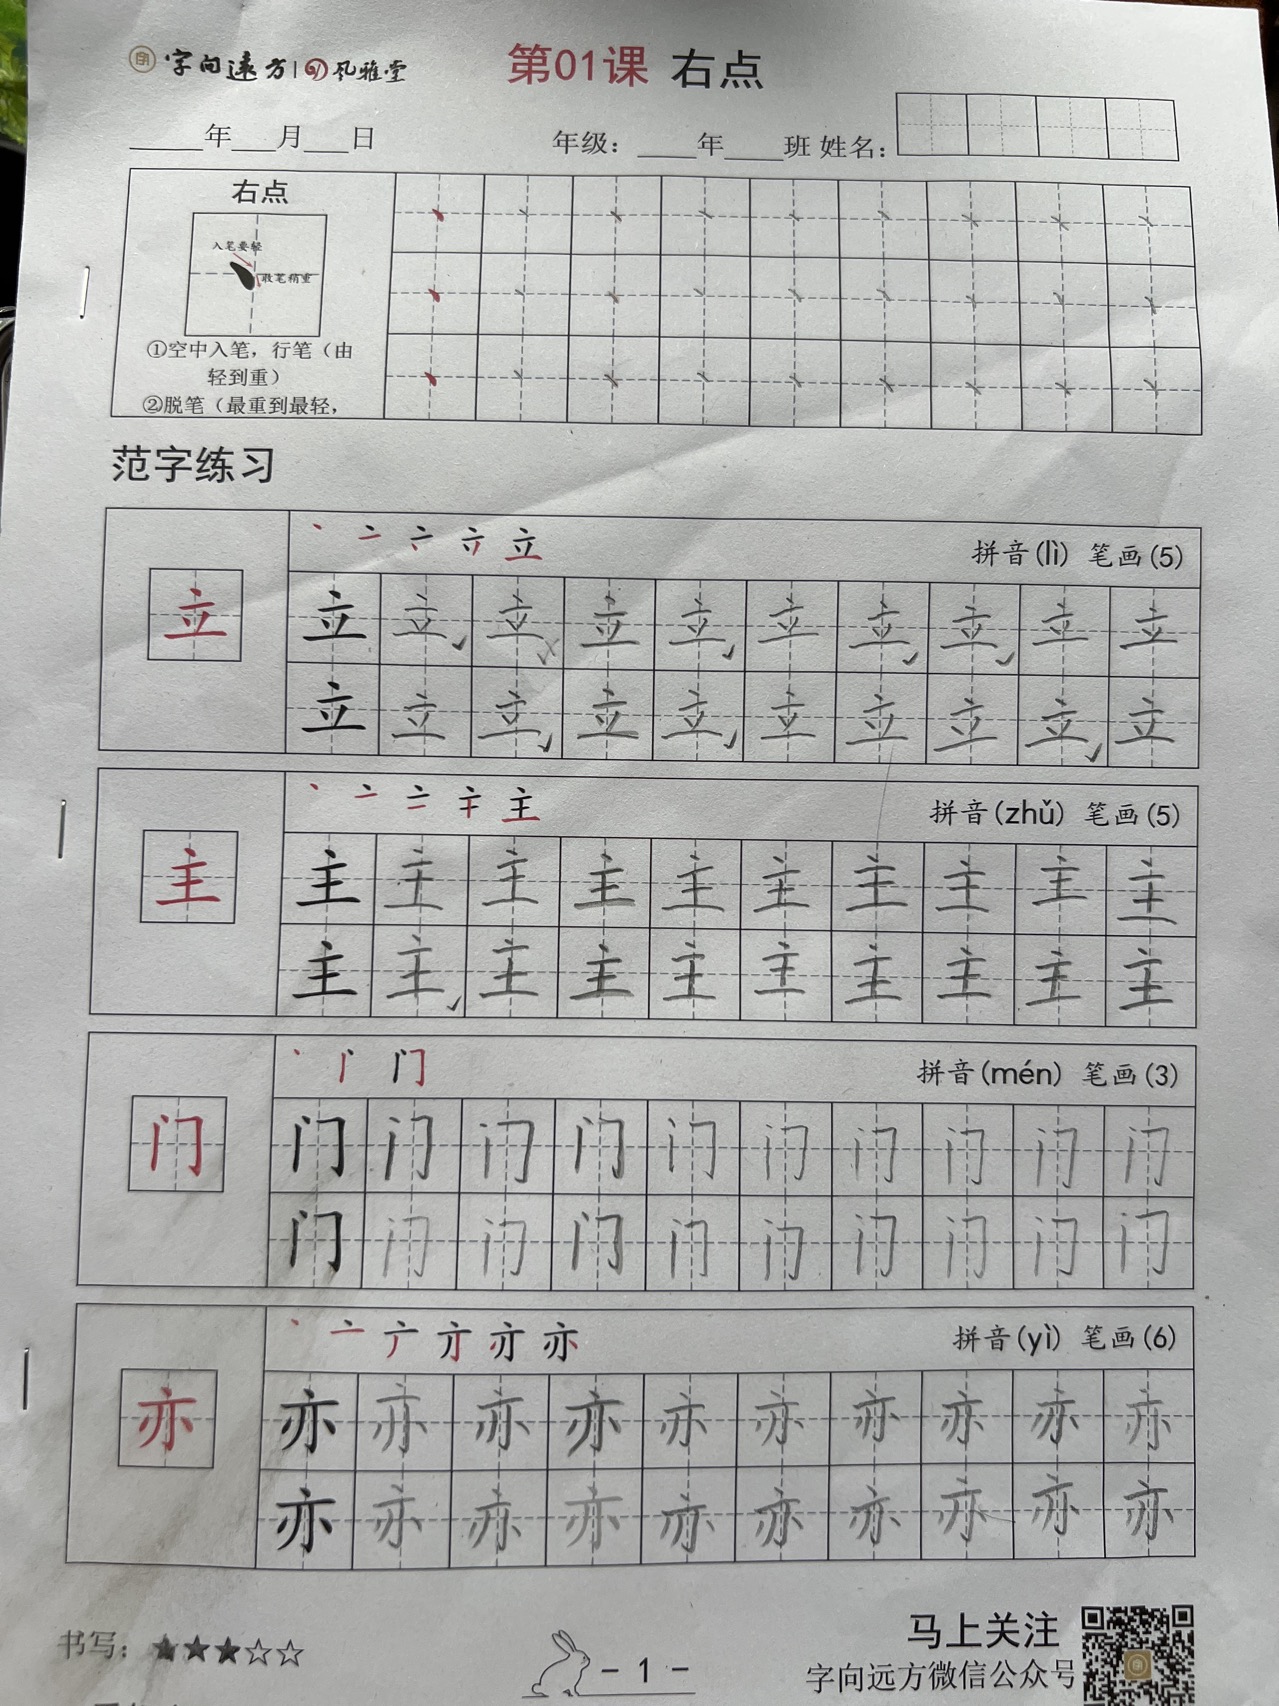 字向远方 | 风雅堂 第01课 右点
____年___月___日 年级：____年____班 姓名：
右点
入笔要轻
收笔稍重
①空中入笔，行笔（由
轻到重）
②脱笔（最重到最轻，
范字练习
拼音(lì) 笔画(5)
立 立 立 立 立 立 立 立 立 立 立
立 立 立 立 立 立 立 立 立 立
拼音(zhǔ) 笔画(5)
主 主 主 主 主 主 主 主 主 主 主
主 主 主 主 主 主 主 主 主 主
拼音(mén) 笔画(3)
门 门 门 门 门 门 门 门 门 门 门
门 门 门 门 门 门 门 门 门 门
拼音(yì) 笔画(6)
亦 亦 亦 亦 亦 亦 亦 亦 亦 亦 亦
亦 亦 亦 亦 亦 亦 亦 亦 亦 亦
书写：★★★☆☆
- 1 -
马上关注
字向远方微信公众号